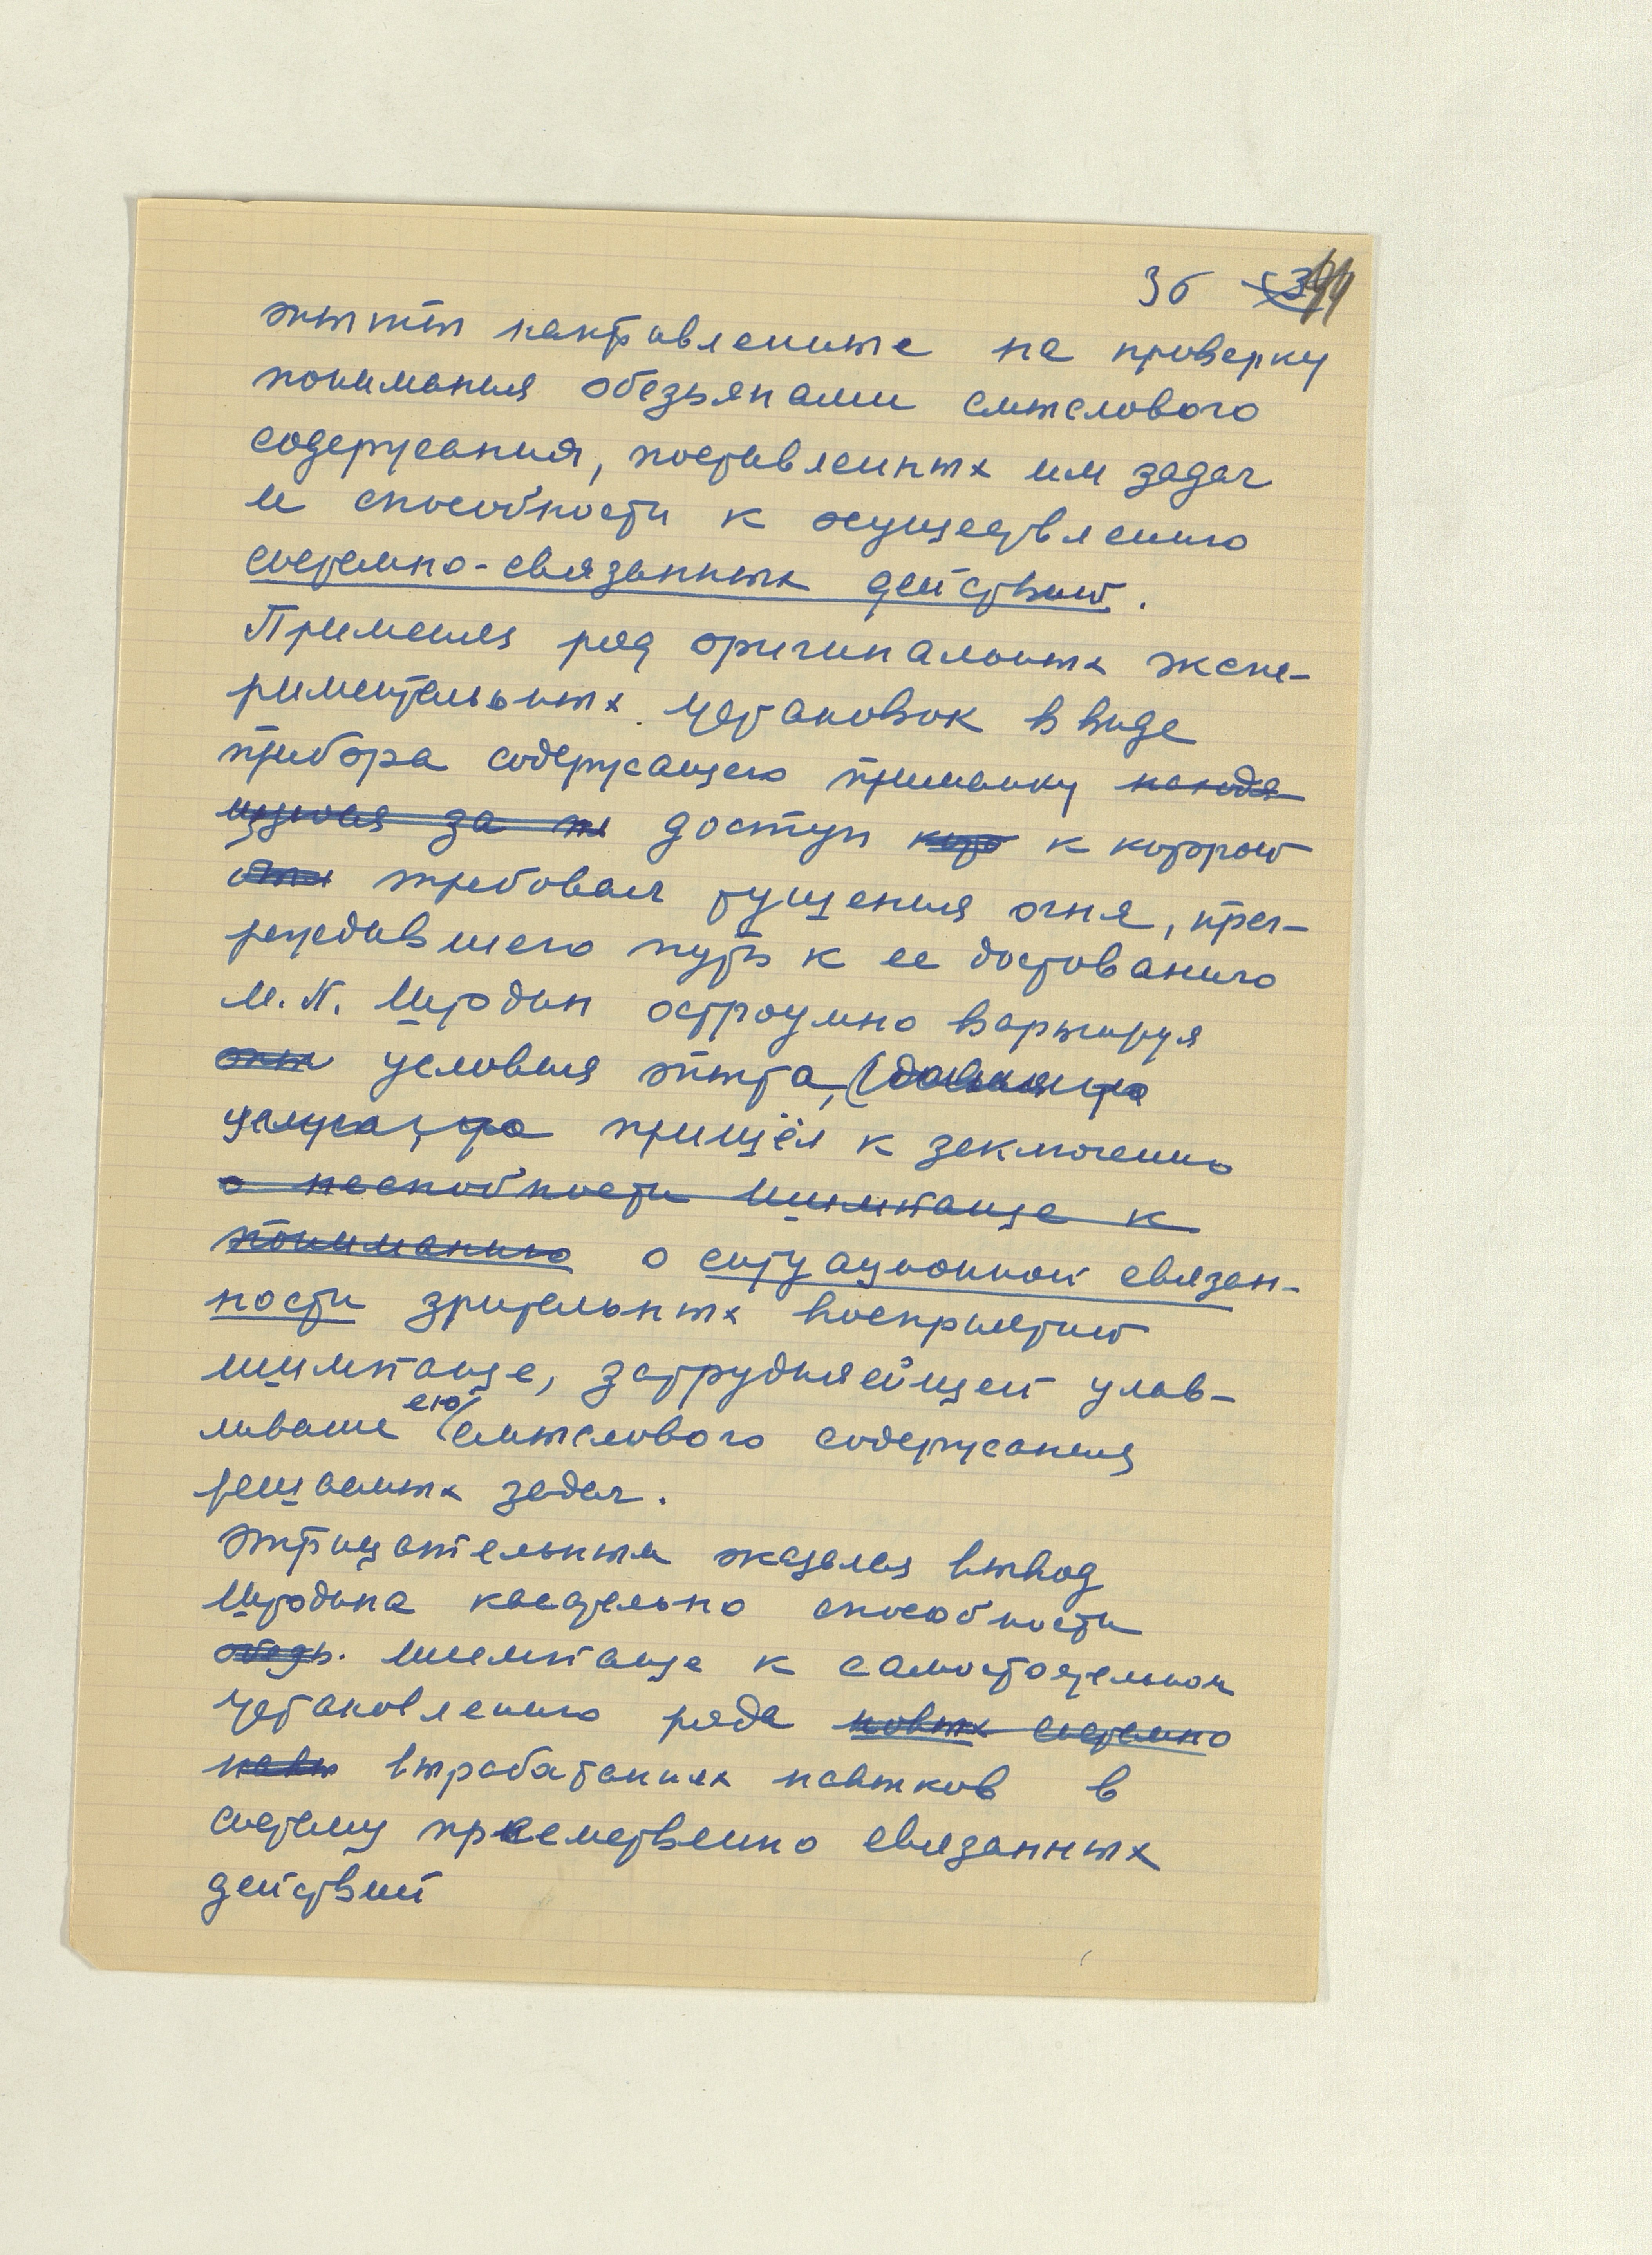 36
опыты направленные на проверку
понимания обезьянами смыслового
содержания, поставленных им задач
и способности к осуществлению
системно-связанных действий.
Применяя ряд оригинальных экспе-
риментальных установок в виде
прибора содержащего приманку находя
щуюся за доступ к которой
требовал тушения огня, прег-
раждавшего путь к ее доставанию
М.П. Штодин остроумно варьируя
условия опыта,
пришёл к заключению
о неспособности шимпанзе к
пониманию о ситуационной связан-
ности зрительных восприятий
шимпанзе, затрудняющей улав-
ливание ею смыслового содержания
решаемых задач.
Отрицательным оказался вывод
Штодина касательно способности
обезь. шимпанзе к самостоятельном
установлению ряда новых системно
навы выработанных навыков в
систему преемственно связанных
действий